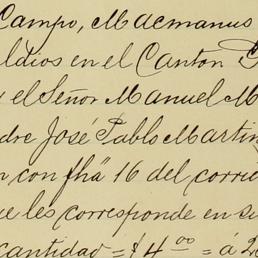 Campo, Macmanus
ldios en el Canton G
y el Señor Manuel M
dre José Pablo Martin
n con fhã 16 del corrie
ue les corresponde en su
cantidad = $ 4 00 = á 2